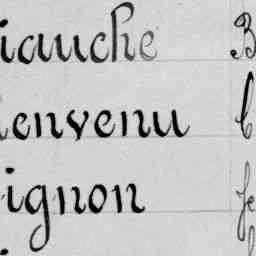 iauche B
ienvenu
ignon